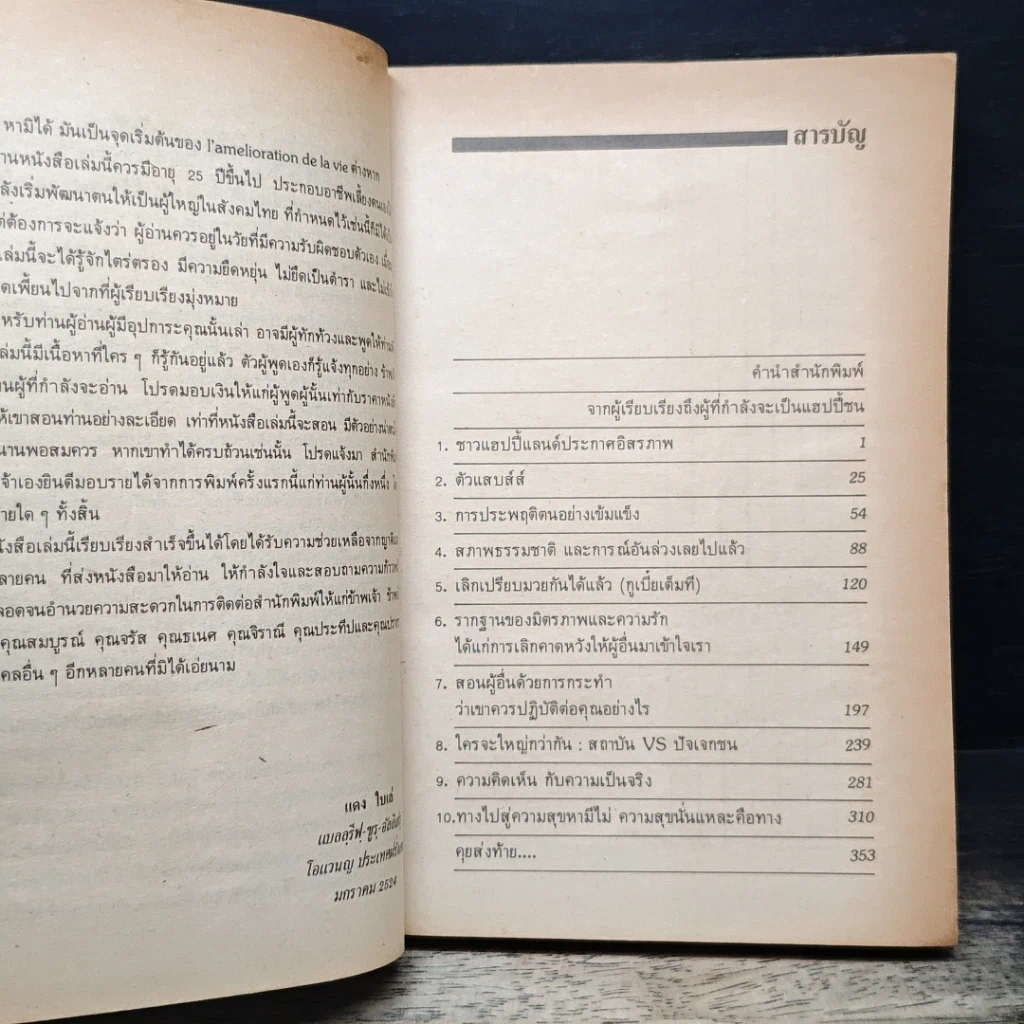 หามิได้ มันเป็นจุดเริ่มต้นของ l'amelioration de la vie ต่างหาก
านหนังสือเล่มนี้ควรมีอายุ 25 ปีขึ้นไป ประกอบอาชีพเลี้ยงตนเอง
ลังเริ่มพัฒนาตนให้เป็นผู้ใหญ่ในสังคมไทย ที่กำหนดไว้เช่นนี้ก็มิได้
ต่ต้องการจะแจ้งว่า ผู้อ่านควรอยู่ในวัยที่มีความรับผิดชอบตัวเอง เมื่อ
เล่มนี้จะได้รู้จักไตร่ตรอง มีความยืดหยุ่น ไม่ยึดเป็นตำรา
ดเพี้ยนไปจากที่ผู้เรียบเรียงมุ่งหมาย
หรับท่านผู้อ่านผู้มีอุปการะคุณนั้นเล่า อาจมีผู้ทักท้วงและพูดให้ท่าน
ล่มนี้มีเนื้อหาที่ใคร ๆ ก็รู้กันอยู่แล้ว ตัวผู้พูดเองก็รู้แจ้งทุกอย่าง
นผู้ที่กำลังจะอ่าน โปรดมอบเงินให้แก่ผู้พูดผู้นั้นเท่ากับราคาหนังสือ
ห้เขาสอนท่านอย่างละเอียด เท่าที่หนังสือเล่มนี้จะสอน มีตัวอย่าง
นานพอสมควร หากเขาทำได้ครบถ้วนเช่นนั้น โปรดแจ้งมา
จ้าเองยินดีมอบรายได้จากการพิมพ์ครั้งแรกนี้แก่ท่านผู้นั้นกึ่งหนึ่ง
ายใด ๆ ทั้งสิ้น
นังสือเล่มนี้เรียบเรียงสำเร็จขึ้นได้โดยได้รับความช่วยเหลือจาก
ลายคน ที่ส่งหนังสือมาให้อ่าน ให้กำลังใจและสอบถามความก้าวหน้า
ลอดจนอำนวยความสะดวกในการติดต่อสำนักพิมพ์ให้แก่ข้าพเจ้า
คุณสมบูรณ์ คุณจรัส คุณธเนศ คุณจิราณี คุณประทีปและ
คลอื่น ๆ อีกหลายคนที่มิได้เอ่ยนาม
แดง ใบเล่
โอแวนญ
มกราคม 2524
สารบัญ
คำนำสำนักพิมพ์
จากผู้เรียบเรียงถึงผู้ที่กำลังจะเป็นแฮปปี้ชน
1. ชาวแฮปปี้แลนด์ประกาศอิสรภาพ 1
2. ตัวแสบส์ส์ 25
3. การประพฤติตนอย่างเข้มแข็ง 54
4. สภาพธรรมชาติ และการณ์อันล่วงเลยไปแล้ว 88
5. เลิกเปรียบมวยกันได้แล้ว (กูเบื่อเต็มที) 120
6. รากฐานของมิตรภาพและความรัก
ได้แก่การเลิกคาดหวังให้ผู้อื่นมาเข้าใจเรา 149
7. สอนผู้อื่นด้วยการกระทำ
ว่าเขาควรปฏิบัติต่อคุณอย่างไร 197
8. ใครจะใหญ่กว่ากัน : สถาบัน VS ปัจเจกชน 239
9. ความคิดเห็น กับความเป็นจริง 281
10.ทางไปสู่ความสุขหามีไม่ ความสุขนั่นแหละคือทาง 310
คุยส่งท้าย.... 353